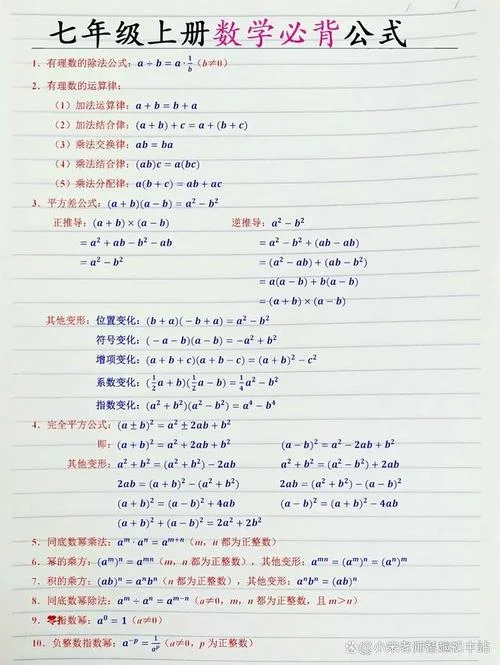 七年级上册数学必背公式
1. 有理数的除法公式：a÷b=a·1/b（b≠0）
2. 有理数的运算律：
（1）加法运算律：a+b=b+a
（2）加法结合律：(a+b)+c=a+(b+c)
（3）乘法交换律：ab=ba
（4）乘法结合律：(ab)c=a(bc)
（5）乘法分配律：a(b+c)=ab+ac
3. 平方差公式：(a+b)(a−b)=a²−b²
正推导：(a+b)×(a−b) 逆推导：a²−b²
=a²+ab−b²−ab =a²−b²+(ab−ab)
=a²−b² =(a²−ab)+(ab−b²)
=a(a−b)+b(a−b)
=(a+b)×(a−b)
其他变形：位置变化：(b+a)(−b+a)=a²−b²
符号变化：(−a−b)(a−b)=−a²+b²
增项变化：(a+b+c)(a+b−c)=(a+b)²−c²
系数变化：(1/2a+b)(1/2a−b)=1/4a²−b²
指数变化：(a²+b²)(a²−b²)=a⁴−b⁴
4. 完全平方公式：(a±b)²=a²±2ab+b²
即：(a+b)²=a²+2ab+b² (a−b)²=a²−2ab+b²
其他变形：a²+b²=(a²+b²)−2ab a²+b²=(a²−b²)+2ab
2ab=(a+b)²−(a²+b²) 2ab=(a²+b²)−(a−b)²
(a+b)²=(a−b)²+4ab (a−b)²=(a+b)²−4ab
(a+b)²+(a−b)²=2a²+2b²
5. 同底数幂乘法：aᵐ·aⁿ=aᵐ⁺ⁿ（m，n都为正整数）
6. 幂的乘方：(aᵐ)ⁿ=aᵐⁿ（m，n都为正整数），其他变形：aᵐⁿ=(aᵐ)ⁿ=(aⁿ)ᵐ
7. 积的乘方：(ab)ⁿ=aⁿbⁿ（n都为正整数），其他变形：aⁿbⁿ=(ab)ⁿ
8. 同底数幂除法：aᵐ÷aⁿ=aᵐ⁻ⁿ（a≠0，m，n都为正整数，且m>n）
9. 零指数幂：a⁰=1（a≠0）
10. 负整数指数幂：a⁻ᵖ=1/aᵖ（a≠0，p为正整数）